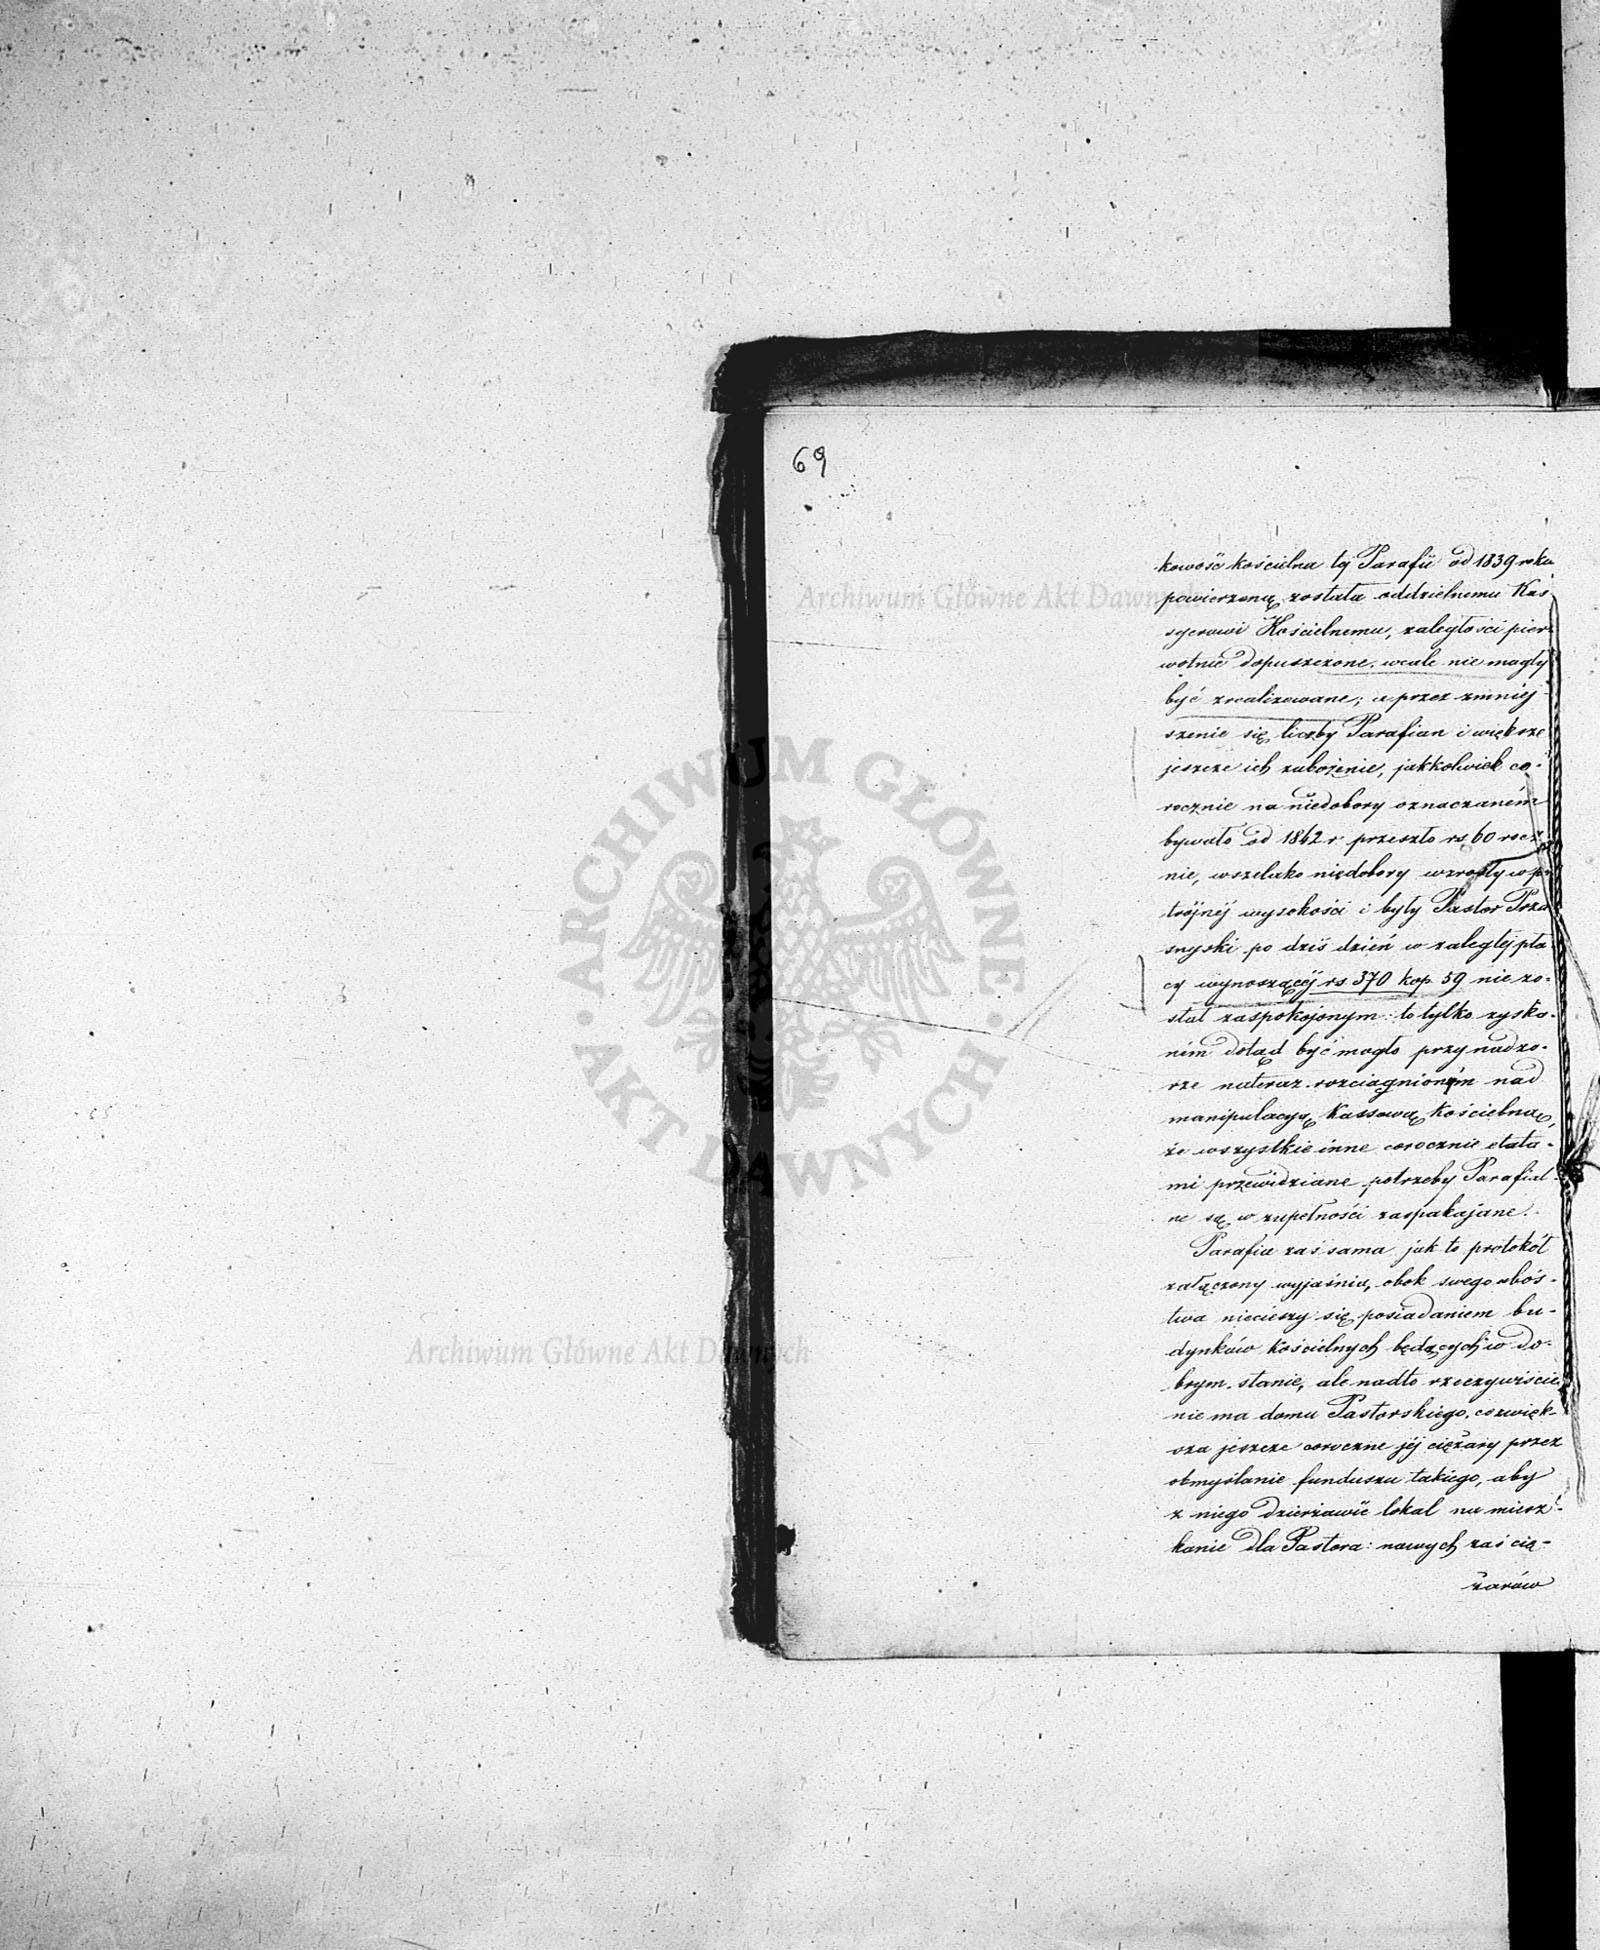 69
kowość kościelna tej Parafii od 1839 roku
powierzoną została oddzielnemu Kas
syerowi Kościelnemu, zaległości pier
wotnie dopuszczone, wcale nie mogły
być zrealizowane; a przez zmniej
szenie się liczby Parafian i większe
jeszcze ich zubożenie, jakkolwiek co-
rocznie na niedobory oznaczaném
bywało od 1842 r przeszło rs 60 rocz
nie, wszelako niedobory wzrosły w po
trójnéj wysokości i były Pastor Prza
snyski po dziś dzień w zaległej pła
cy wynoszącéj rs 370 kop 59 nie zo-
stał zaspokojonym: to tylko zyska-
ném dotąd być mogło przy nadzo-
rze nateraz rozciągnionym nad
manipulacyą Kassową Kościelną,
że wszystkie inne corocznie etata-
mi przewidziane potrzeby Parafial-
ne są w zupełności zaspakajane.
Parafia zaś sama jak to protokół
załączony wyjaśnia, obok swego ubós-
twa niecieszy się posiadaniem bu-
dynków Kościelnych będących w do-
brym stanie, ale nadto rzeczywiście
nie ma domu Pastorskiego, co zwięk-
sza jeszcze coroczne jéj ciężary przez
obmyślanie funduszu takiego, aby
z niego dzierżawić lokal na miesz-
kanie dla Pastora: nowych zaś cię-
żarów
Archiwum Główne Akt Dawnych
ARCHIWUM GŁÓWNE · AKT DAWNYCH ·
Archiwum Główne Akt Dawnych